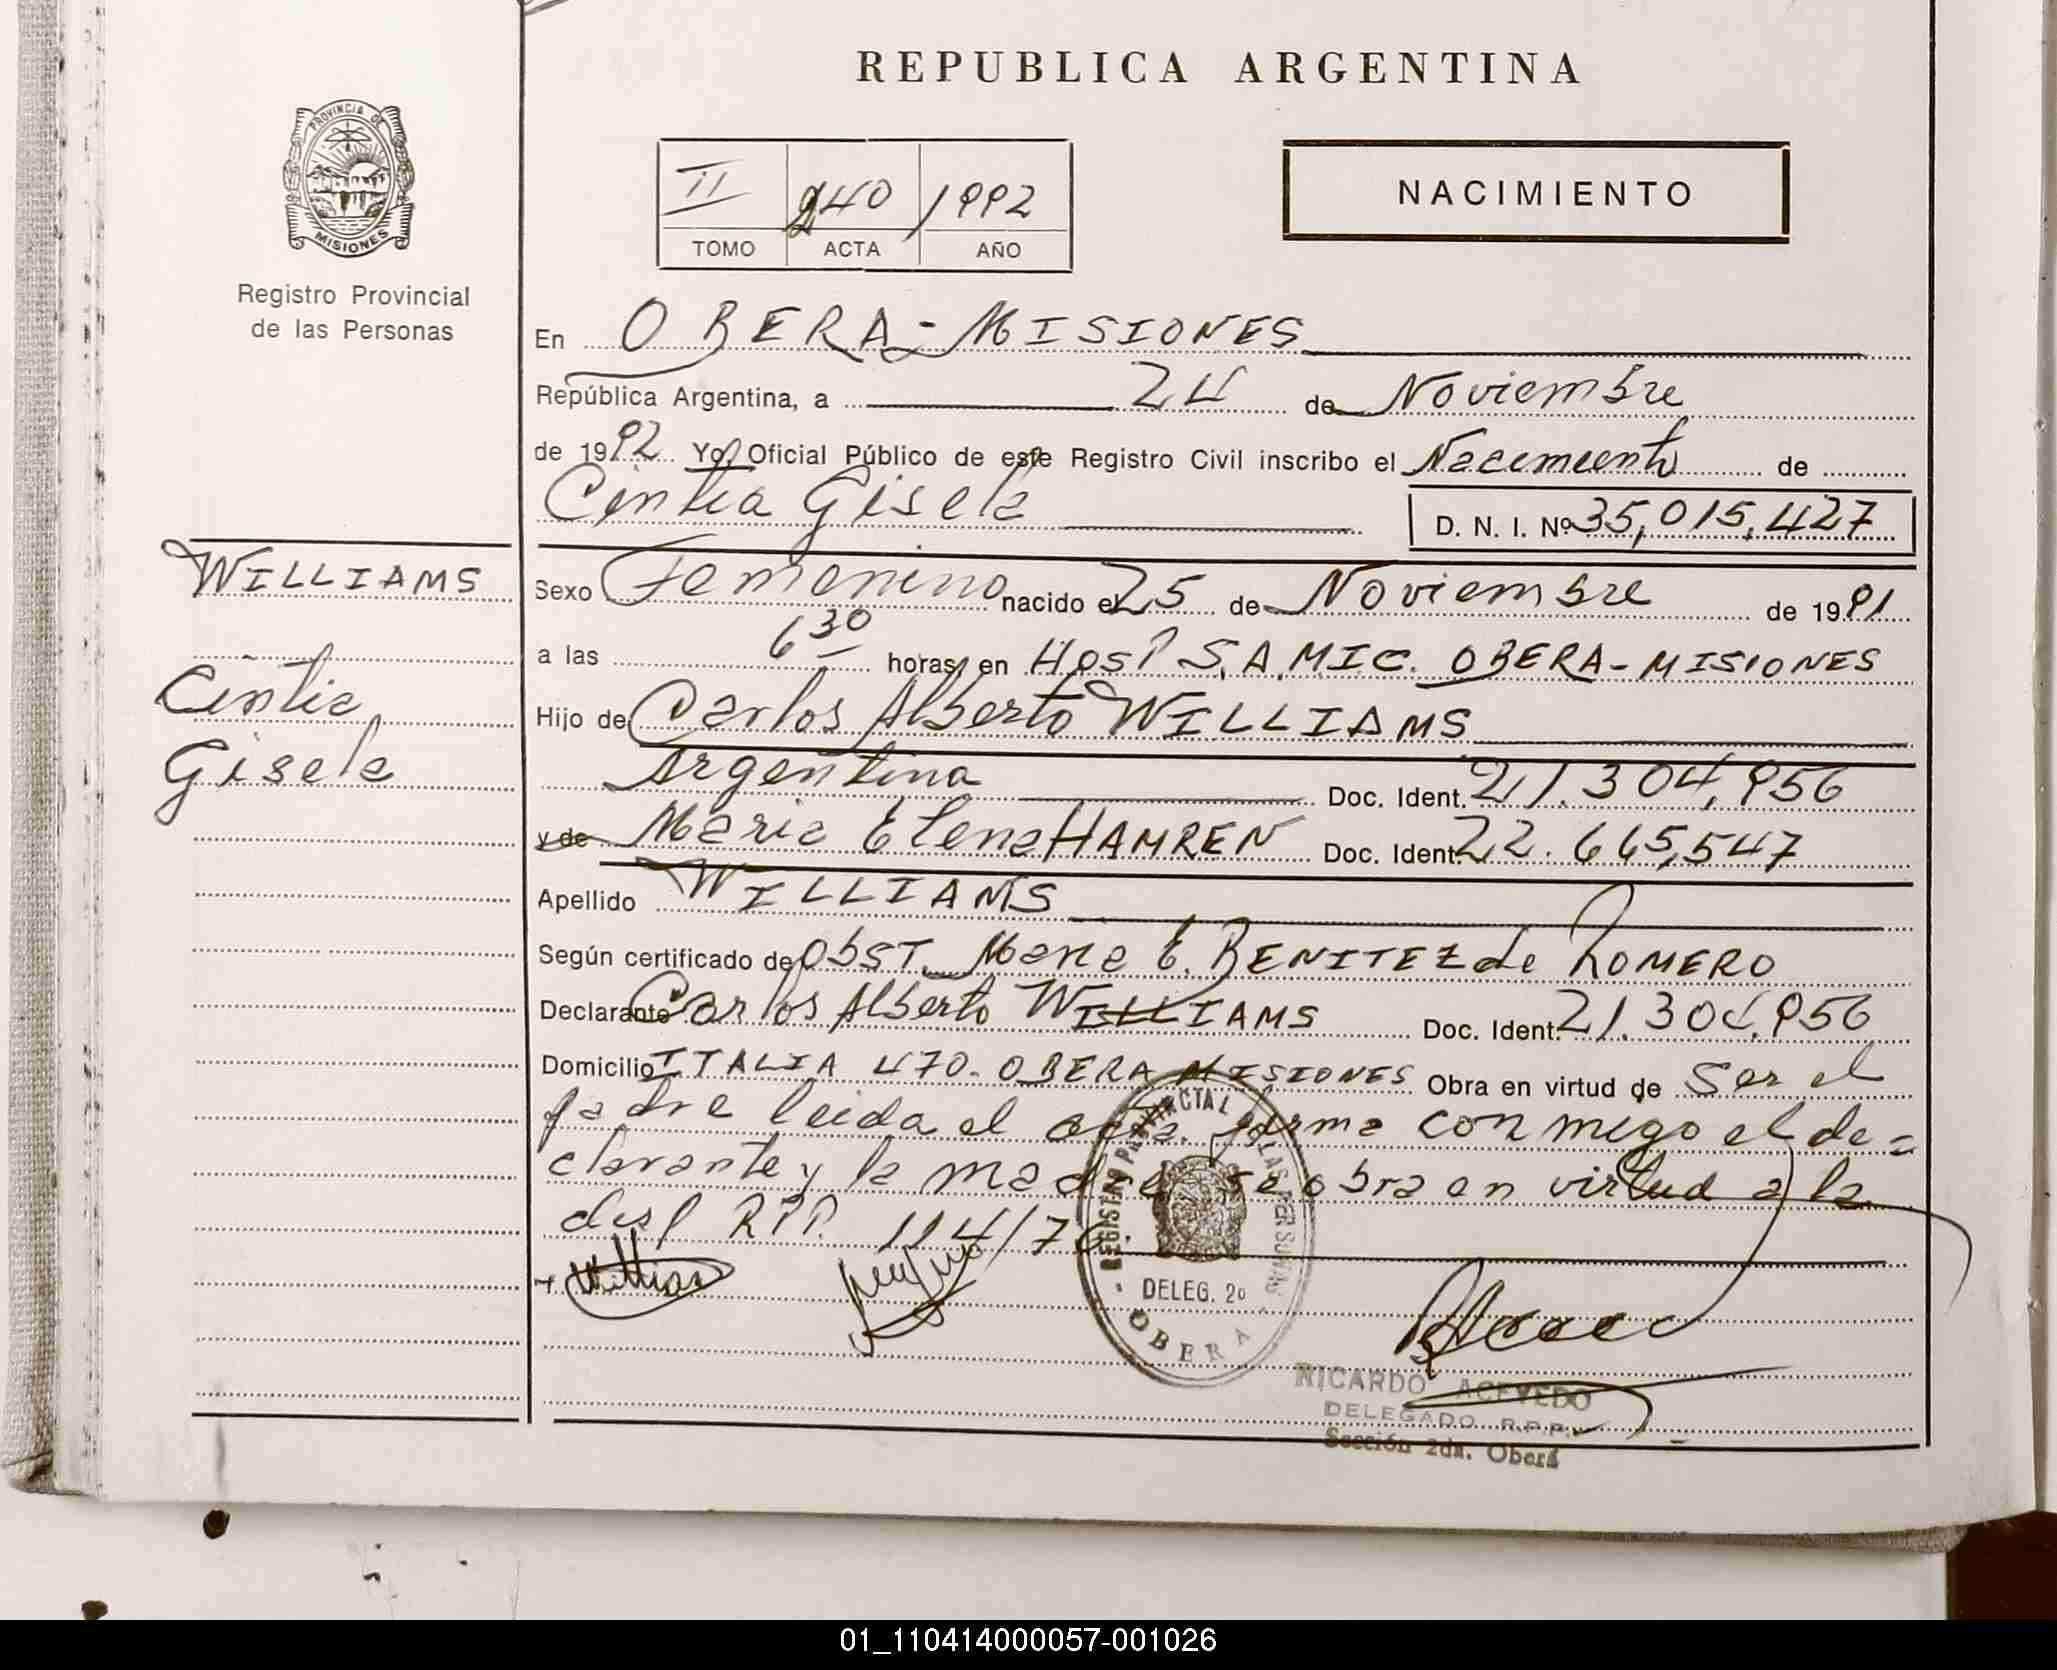 REPUBLICA ARGENTINA
PROVINCIA DE
MISIONES
Registro Provincial
de las Personas
II 240 1992
TOMO ACTA AÑO
NACIMIENTO
En OBERA - MISIONES
República Argentina, a 24 de Noviembre
de 1992 Yo, Oficial Público de este Registro Civil inscribo el Nacimiento de
Cintia Gisela D. N. I. Nº 35,015,427
WILLIAMS
Cintia
Gisela
Sexo Femenino nacido el 25 de Noviembre de 1991
a las 6 30 horas, en Hosp S.A.MIC. OBERA - MISIONES
Hijo de Carlos Alberto WILLIAMS
Argentina Doc. Ident. 21.304,956
y de Maria Elena HAMREN Doc. Ident. 22.665,547
Apellido WILLIAMS
Según certificado de Obst. Maria E. BENITEZ de ROMERO
Declarante Carlos Alberto WILLIAMS Doc. Ident. 21.304.956
Domicilio ITALIA 470. OBERA MISIONES Obra en virtud de Ser el
padre leida el acta firma con migo el de=
clarante y la madre se obra en virtud a la
disp RPP. 114/76.
Willias
REGISTRO PROVINCIAL DE LAS PERSONAS
DELEG. 2º
OBERA
RICARDO ACEVEDO
DELEGADO R.P.P.
Sección 2da. Oberá
01_110414000057-001026